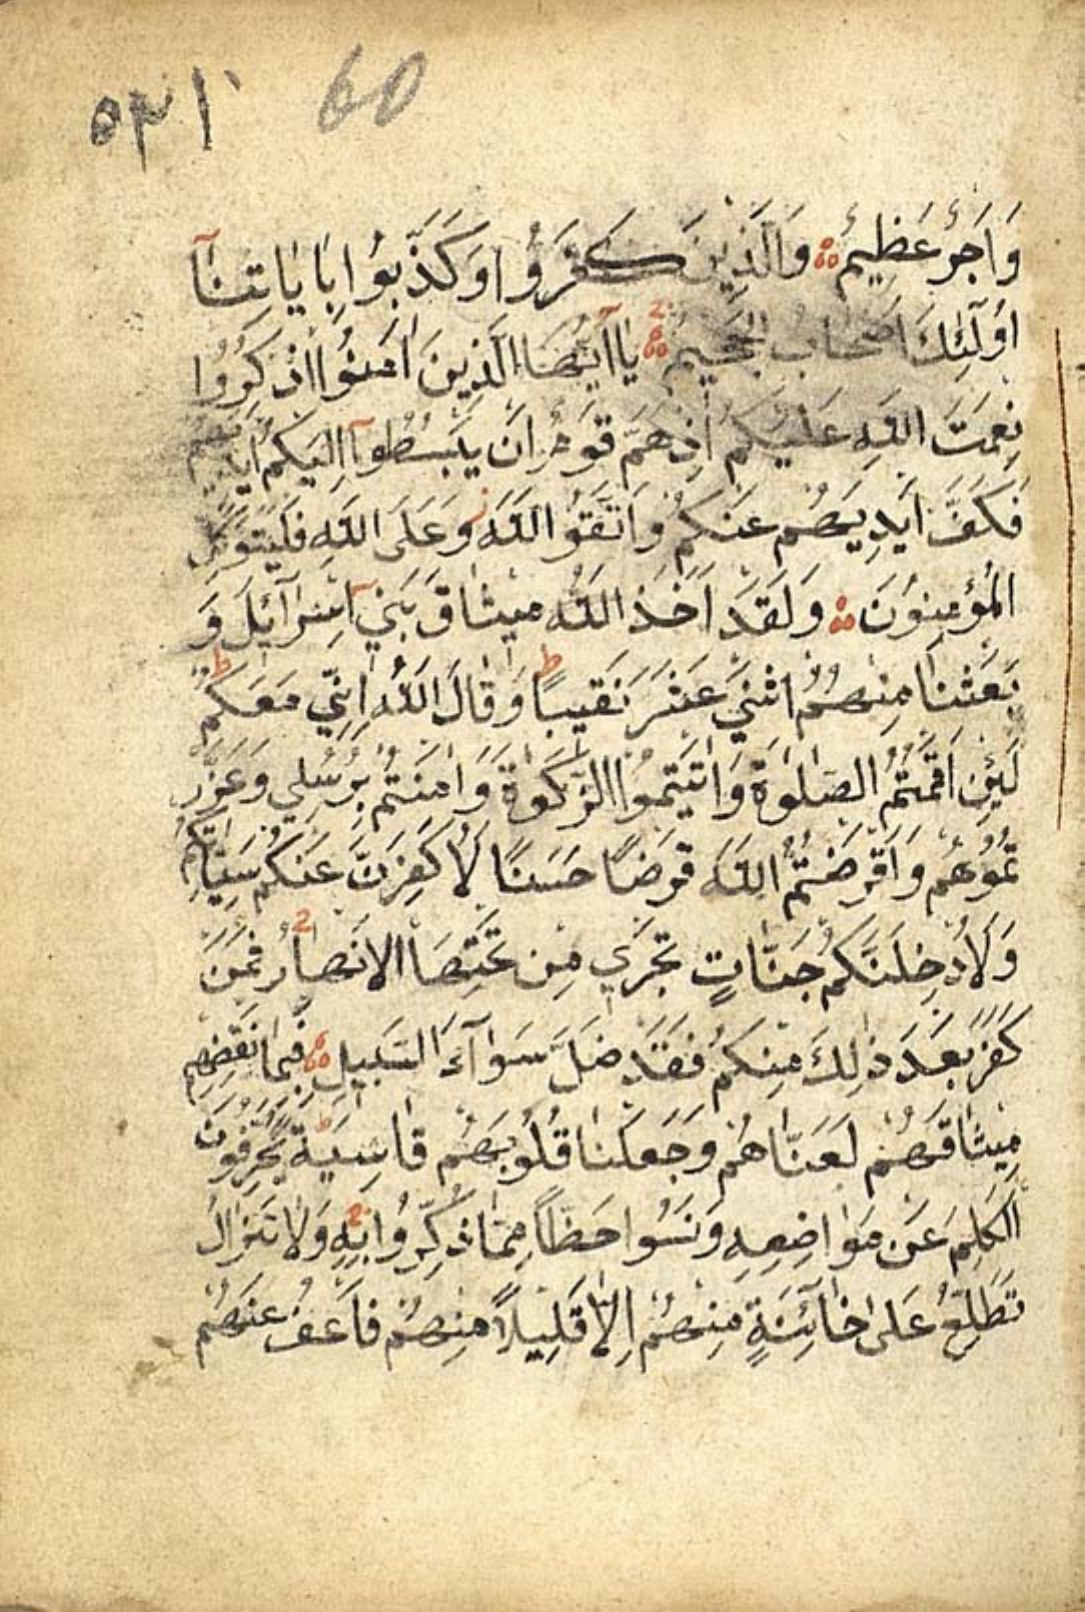 ٥٢١ 60
وَاَجْرٌ عَظِيمٌ وَالَّذِينَ كَفَرُوا وَكَذَّبُوا بِاٰيَاتِنَآ
اُولٰٓئِكَ اَصْحَابُ الْجَحِيمِ يَآ اَيُّهَا الَّذِينَ اٰمَنُوا اذْكُرُوا
نِعْمَتَ اللّٰهِ عَلَيْكُمْ اِذْ هَمَّ قَوْمٌ اَنْ يَبْسُطُوٓا اِلَيْكُمْ اَيْدِيَهُمْ
فَكَفَّ اَيْدِيَهُمْ عَنْكُمْ وَاتَّقُوا اللّٰهَ وَعَلَى اللّٰهِ فَلْيَتَوَكَّلِ
الْمُؤْمِنُونَ وَلَقَدْ اَخَذَ اللّٰهُ مِيثَاقَ بَنِيٓ اِسْرَآئِلَ وَ
بَعَثْنَا مِنْهُمُ اثْنَيْ عَشَرَ نَقِيبًا ط وَقَالَ اللّٰهُ اِنِّي مَعَكُمْ ط
لَئِنْ اَقَمْتُمُ الصَّلٰوةَ وَاٰتَيْتُمُوا الزَّكٰوةَ وَاٰمَنْتُمْ بِرُسُلِي وَعَزَّرْ
تُمُوهُمْ وَاَقْرَضْتُمُ اللّٰهَ قَرْضًا حَسَنًا لَاُكَفِّرَنَّ عَنْكُمْ سَيِّاٰتِكُمْ
وَلَاُدْخِلَنَّكُمْ جَنَّاتٍ تَجْرِي مِنْ تَحْتِهَا الْاَنْهَارُ فَمَنْ
كَفَرَ بَعْدَ ذٰلِكَ مِنْكُمْ فَقَدْ ضَلَّ سَوَآءَ السَّبِيلِ فَبِمَا نَقْضِهِمْ
مِيثَاقَهُمْ لَعَنَّاهُمْ وَجَعَلْنَا قُلُوبَهُمْ قَاسِيَةً ط يُحَرِّفُونَ
الْكَلِمَ عَنْ مَوَاضِعِهِ وَنَسُوا حَظًّا مِمَّا ذُكِّرُوا بِهِ وَلَا تَزَالُ
تَطَّلِعُ عَلٰى خَآئِنَةٍ مِنْهُمْ اِلَّا قَلِيلًا مِنْهُمْ فَاعْفُ عَنْهُمْ